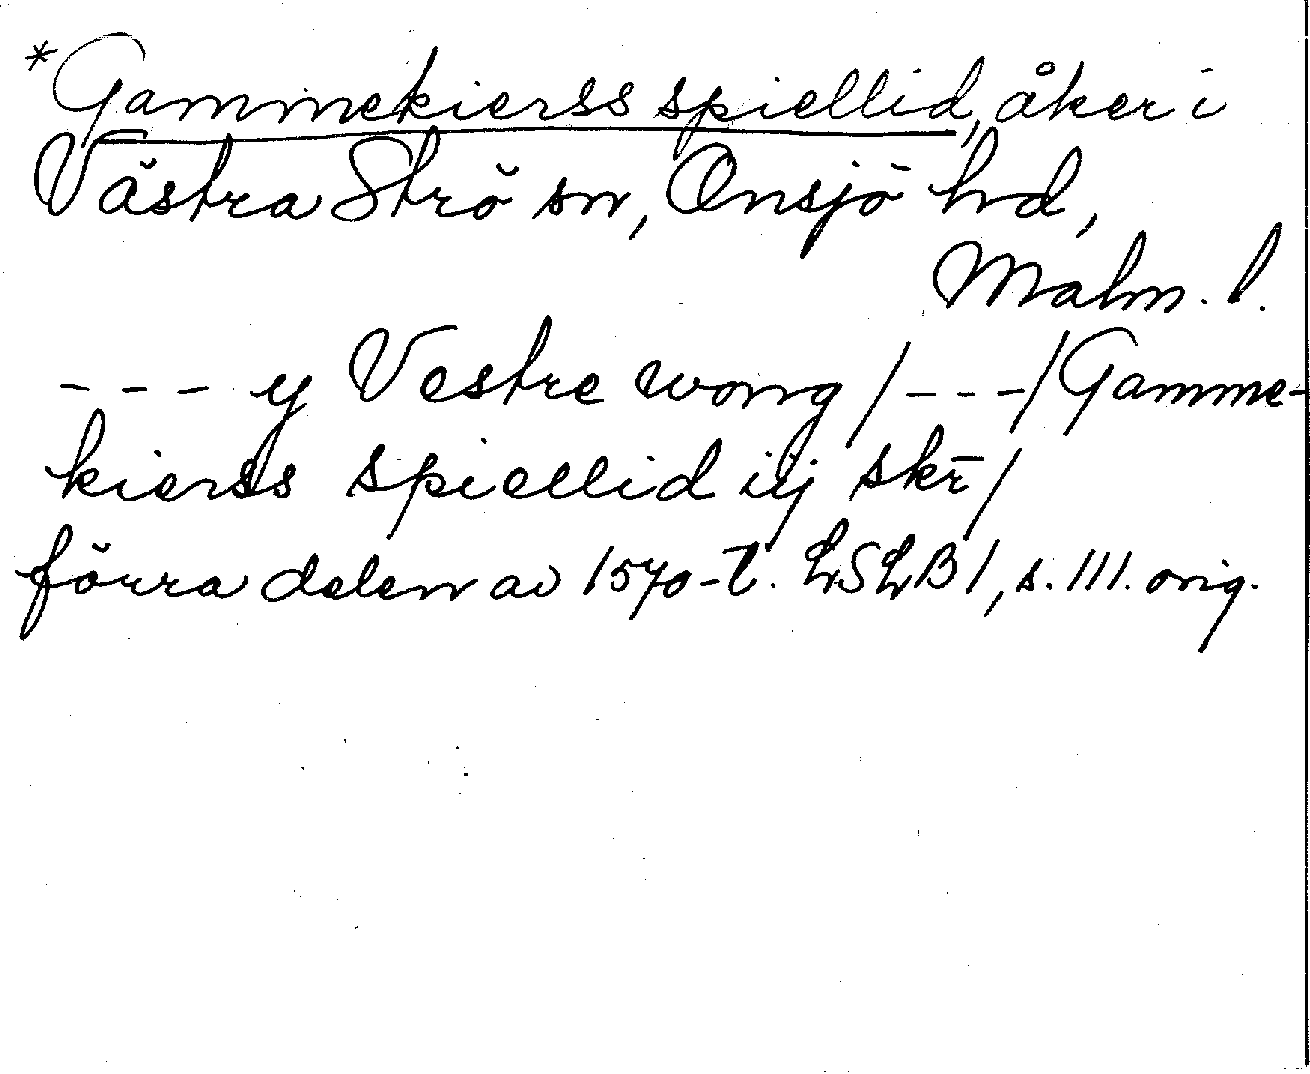 *Gammekierss spiellid, åker i
Västra Strö sn, Onsjö hd,
Malm. l.
- - - y Vestre wong /- - -/ Gamme-
kierss spiellid iij skr̄/
förra delen av 1570-t. LSLB1, s. 111. orig.